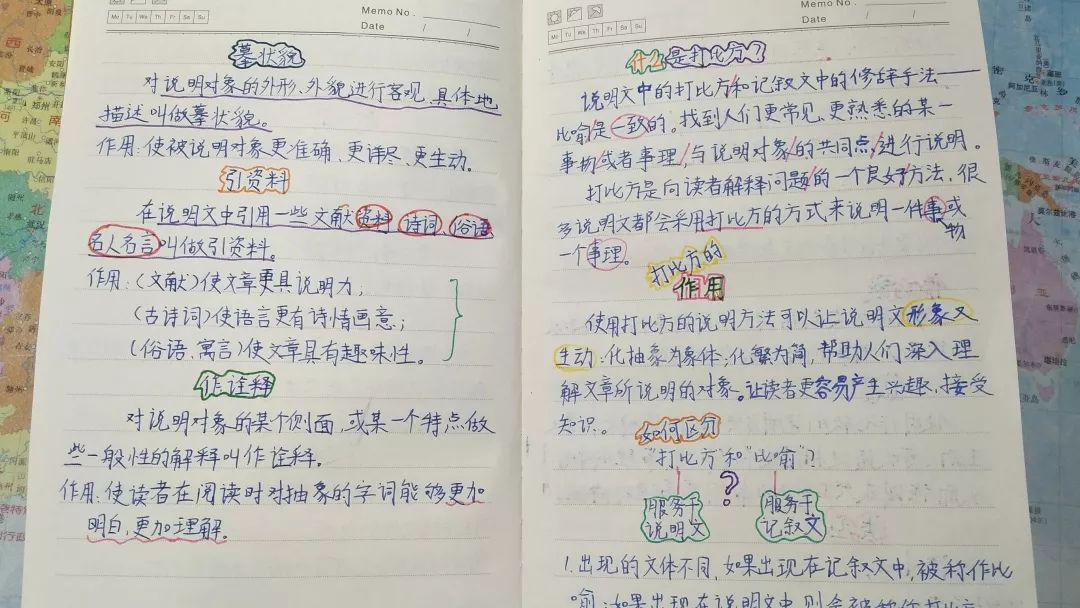 Memo No.
Mo Tu We Th Fr Sa Su
Date / /
摹状貌
对说明对象的外形、外貌进行客观、具体地
描述叫做摹状貌。
作用:使被说明对象更准确、更详尽、更生动。
引资料
在说明文中引用一些文献资料 诗词、俗语
名人名言叫做引资料。
作用:(文献)使文章更具说明力;
(古诗词)使语言更有诗情画意;
(俗语、寓言)使文章具有趣味性。
作诠释
对说明对象的某个侧面,或某一个特点做
些一般性的解释叫作诠释。
作用:使读者在阅读时对抽象的字词能够更加
明白,更加理解。
Memo No.
Mo Tu We Th Fr Sa Su
Date / /
什么是打比方?
说明文中的打比方和记叙文中的修辞手法——
比喻是一致的。找到人们更常见、更熟悉的某一
事物或者事理,与说明对象的共同点,进行说明。
打比方是向读者解释问题的一个良好方法,很
多说明文都会采用打比方的方式来说明一件事物或
一个事理。
打比方的
作用
使用打比方的说明方法可以让说明文形象又
生动,化抽象为象体,化繁为简,帮助人们深入理
解文章所说明的对象。让读者更容易产生兴趣、接受
知识。
如何区分
“打比方”和“比喻”?
?
服务于 服务于
说明文 记叙文
1.出现的文体不同,如果出现在记叙文中,被称作比
喻;如果出现在说明文中,则会被称作打比方